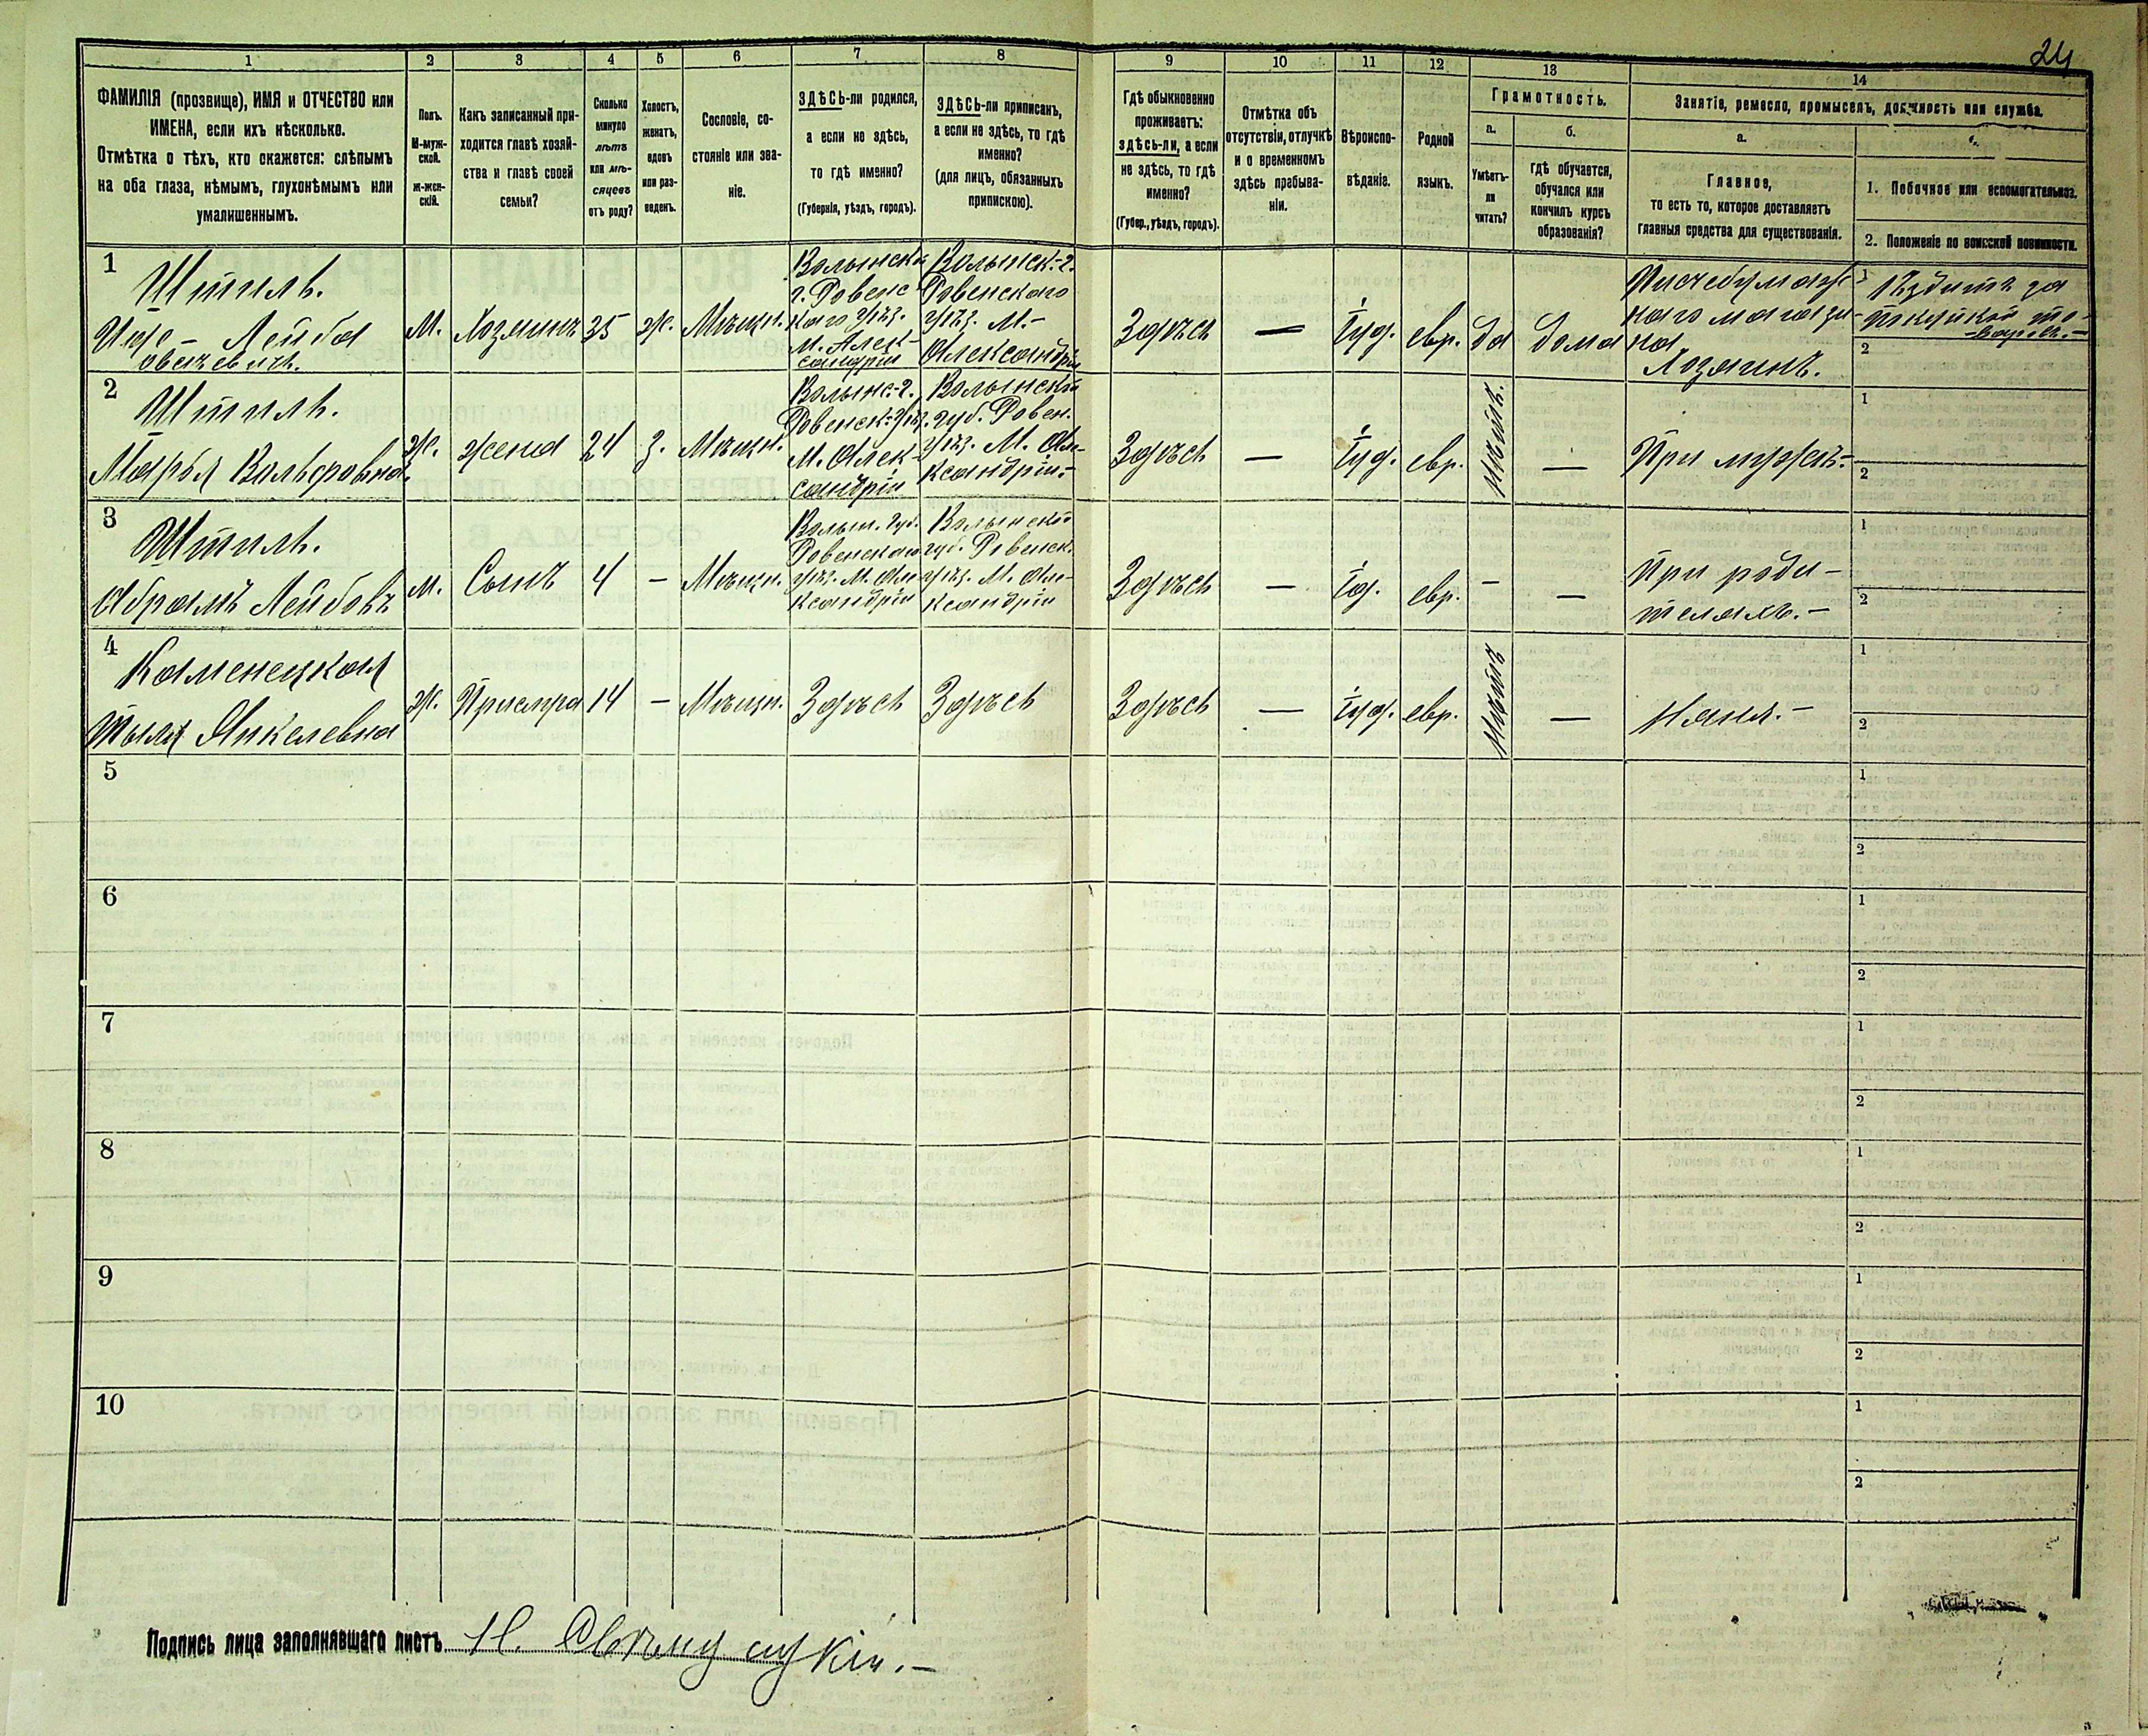 24
1 2 3 4 5 6 7 8 9 10 11 12 13 14
ФАМИЛІЯ (прозвище), ИМЯ и ОТЧЕСТВО или
ИМЕНА, если ихъ нѣсколько.
Отмѣтка о тѣхъ, кто окажется: слѣпымъ
на оба глаза, нѣмымъ, глухонѣмымъ или
умалишеннымъ.
Полъ.
М-муж-
ской.
ж-жен-
скій.
Какъ записанный при-
ходится главѣ хозяй-
ства и главѣ своей
семьи?
Сколько
минуло
лѣтъ
или мѣ-
сяцевъ
отъ роду?
Холостъ,
женатъ,
вдовъ
или раз-
веденъ.
Сословіе, со-
стояніе или зва-
ніе.
ЗДѢСЬ-ли родился,
а если не здѣсь,
то гдѣ именно?
(Губернія, уѣздъ, городъ).
ЗДѢСЬ-ли приписанъ,
а если не здѣсь, то гдѣ
именно?
(для лицъ, обязанныхъ
припискою).
Гдѣ обыкновенно
проживаетъ:
здѣсь-ли, а если
не здѣсь, то гдѣ
именно?
(Губер., уѣздъ, городъ).
Отмѣтка объ
отсутствіи, отлучкѣ
и о временномъ
здѣсь пребыва-
ніи.
Вѣроиспо-
вѣданіе.
Родной
языкъ.
Грамотность.
а.
Умѣетъ-
ли
читать?
б.
гдѣ обучается,
обучался или
кончилъ курсъ
образованія?
Занятіе, ремесло, промыселъ, должность или служба.
а.
Главное,
то есть то, которое доставляетъ
главныя средства для существованія.
1. Побочное или вспомогательное.
2. Положеніе по воинской повинности.
1
Штиль.
Лейба
М.
Хозяинъ
35
ж.
Мѣщн.
Волынск
г. Ровенс
каго уѣз.
м. Алек-
сандрія
Волынск.-г.
Ровенскаго
уѣз. М.-
Александрія
Здѣсь
—
Іуд.
евр.
да
дома
Писчебумаж
наго магази-
на
Хозяинъ.
1 Ѣздитъ за
покупкой то-
варовъ.-
2
2
Штиль.
Марья Вольфовна
ж.
жена
24
з.
Мѣщн.
Волынс.-г.
Ровенск. уѣз.
М. Алек-
сандрія
Волынской
губ. Ровен.
уѣз. М. Але-
ксандрія.-
Здѣсь
—
Іуд.
евр.
Нѣтъ.
—
При мужѣ.-
1
2
3
Штиль.
Абрамъ Лейбовъ
м.
Сынъ
4
—
Мѣщн.
Волын. губ.
Ровенскаго
уѣз. М. Але-
ксандрія
Волынской
губ. Ровенск.
уѣз. М. Але-
ксандрія
Здѣсь
—
Ід.
евр.
—
—
При роди-
теляхъ.-
1
2
4
Каменецкая
Тыля Янкелевна
ж.
Прислуга
14
—
Мѣщн.
Здѣсь
Здѣсь
Здѣсь
—
Іуд.
евр.
Нѣтъ
—
Няня.-
1
2
5
1
2
6
1
2
7
1
2
8
1
2
9
1
2
10
1
2
Подпись лица заполнявшаго листъ